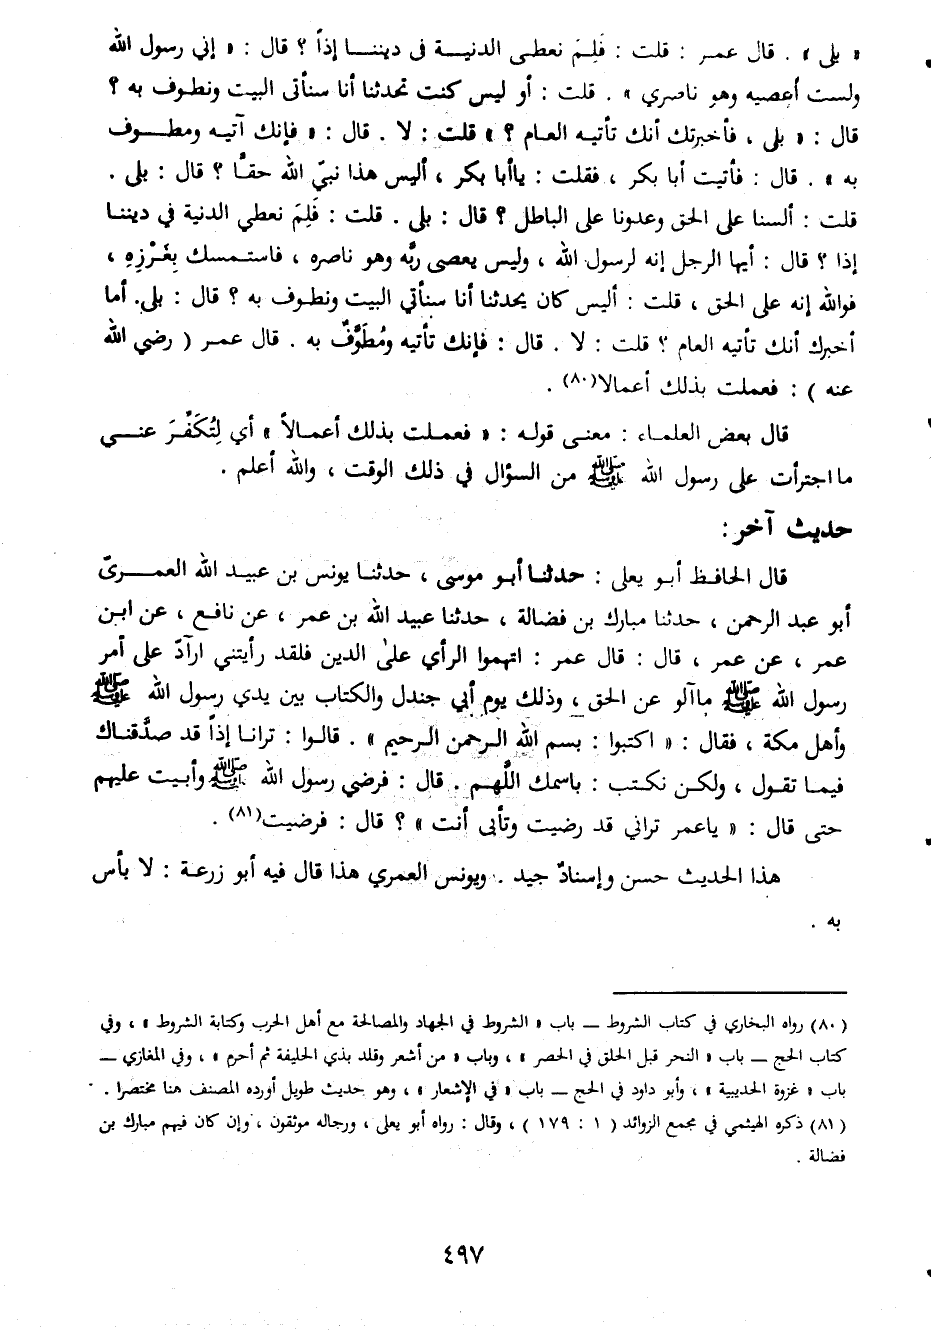 « بلى » . قال عمر : قلت : فَلِمَ نعطي الدنية في ديننا إذاً ؟ قال : « إني رسول الله
ولست أعصيه وهو ناصري » . قلت : أو ليس كنت تحدثنا أنا سنأتي البيت ونطوف به ؟
قال : « بلى ، فأخبرتك أنك تأتيه العام ؟ » قلت : لا . قال : « فإنك آتيه ومطوف
به » . قال : فأتيت أبا بكر ، فقلت : ياأبا بكر ، أليس هذا نبيّ الله حقًّا ؟ قال : بلى .
قلت : ألسنا على الحق وعدونا على الباطل ؟ قال : بلى . قلت : فَلِمَ نعطي الدنية في ديننا
إذا ؟ قال : أيها الرجل إنه لرسول الله ، وليس يعصي ربَّه وهو ناصره ، فاستمسك بِغَرْزِهِ ،
فوالله إنه على الحق ، قلت : أليس كان يحدثنا أنا سنأتي البيت ونطوف به ؟ قال : بلى. أما
أخبرك أنك تأتيه العام ؟ قلت : لا . قال : فإنك تأتيه ومُطَوِّفٌ به . قال عمر ( رضي الله
عنه ) : فعملت بذلك أعمالا(٨٠) .
قال بعض العلماء : معنى قوله : « فعملت بذلك أعمالاً » أي لِتُكَفِّرَ عني
ما اجترأت على رسول الله ﷺ من السؤال في ذلك الوقت ، والله أعلم .
حديث آخر :
قال الحافظ أبو يعلى : حدثنا أبو موسى ، حدثنا يونس بن عبيد الله العمريّ
أبو عبد الرحمن ، حدثنا مبارك بن فضالة ، حدثنا عبيد الله بن عمر ، عن نافع ، عن ابن
عمر ، عن عمر ، قال : قال عمر : اتهموا الرأي على الدين فلقد رأيتني أرآدّ على أمر
رسول الله ﷺ ماآلو عن الحق ، وذلك يوم أبي جندل والكتاب بين يدي رسول الله ﷺ
وأهل مكة ، فقال : « اكتبوا : بسم الله الرحمن الرحيم » . قالوا : ترانا إذاً قد صدَّقناك
فيما تقول ، ولكن نكتب : باسمك اللَّهم . قال : فرضي رسول الله ﷺ وأبيت عليهم
حتى قال : « ياعمر تراني قد رضيت وتأبى أنت » ؟ قال : فرضيت(٨١) .
هذا الحديث حسن وإسنادٌ جيد . ويونس العمري هذا قال فيه أبو زرعة : لا بأس
به .
(٨٠) رواه البخاري في كتاب الشروط – باب « الشروط في الجهاد والمصالحة مع أهل الحرب وكتابة الشروط » ، وفي
كتاب الحج – باب « النحر قبل الحلق في الحصر » ، وباب « من أشعر وقلد بذي الحليفة ثم أحرم » ، وفي المغازي –
باب « غزوة الحديبية » ، وأبو داود في الحج – باب « في الإشعار » ، وهو حديث طويل أورده المصنف هنا مختصرا .
(٨١) ذكره الهيثمي في مجمع الزوائد ( ١ : ١٧٩ ) ، وقال : رواه أبو يعلى ، ورجاله موثقون ، وإن كان فيهم مبارك بن
فضالة .
٤٩٧